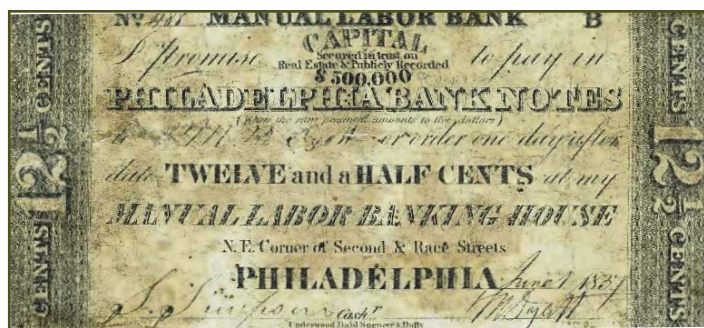 No 488 MANUAL LABOR BANK B
CAPITAL
I Promise Secured in trust on to pay in
Real Estate & Publicly Recorded
$500,000
PHILADELPHIA BANK NOTES
(when the sum presented amounts to five dollars)
to or order one day after
date TWELVE and a HALF CENTS at my
MANUAL LABOR BANKING HOUSE
N.E. Corner of Second & Race Streets
PHILADELPHIA June 1 1837
S. Simpson Cashr
Underwood Bald Spencer & Hufty
CENTS 12 1/2 CENTS
CENTS 12 1/2 CENTS